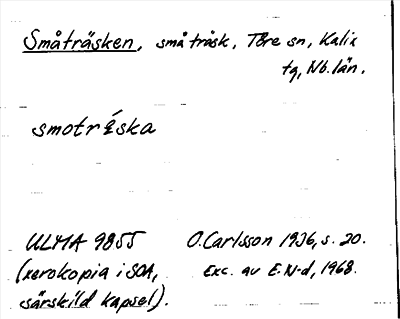 Småträsken, små träsk, Töre sn, Kalix
tg, Nb. län.
smotrę́ska
ULMA 9855 O. Carlsson 1936, s. 20.
(xerokopia i SOA, Exc. av E. N-d, 1968.
särskild kapsel).